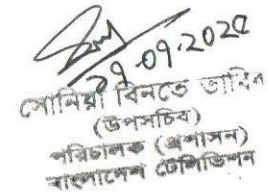 29.09.2020
সোনিয়া বিনতে তাবিব
(উপসচিব)
পরিচালক (প্রশাসন)
বাংলাদেশ টেলিভিশন